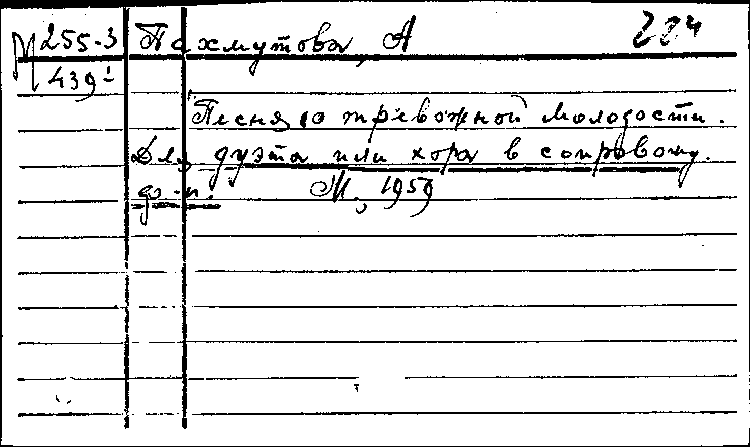 М 255-3 Пахмутова, А 224
439
Песня о тревожной молодости.
Для дуэта или хора в сопровожд.
ф-п. М., 1959